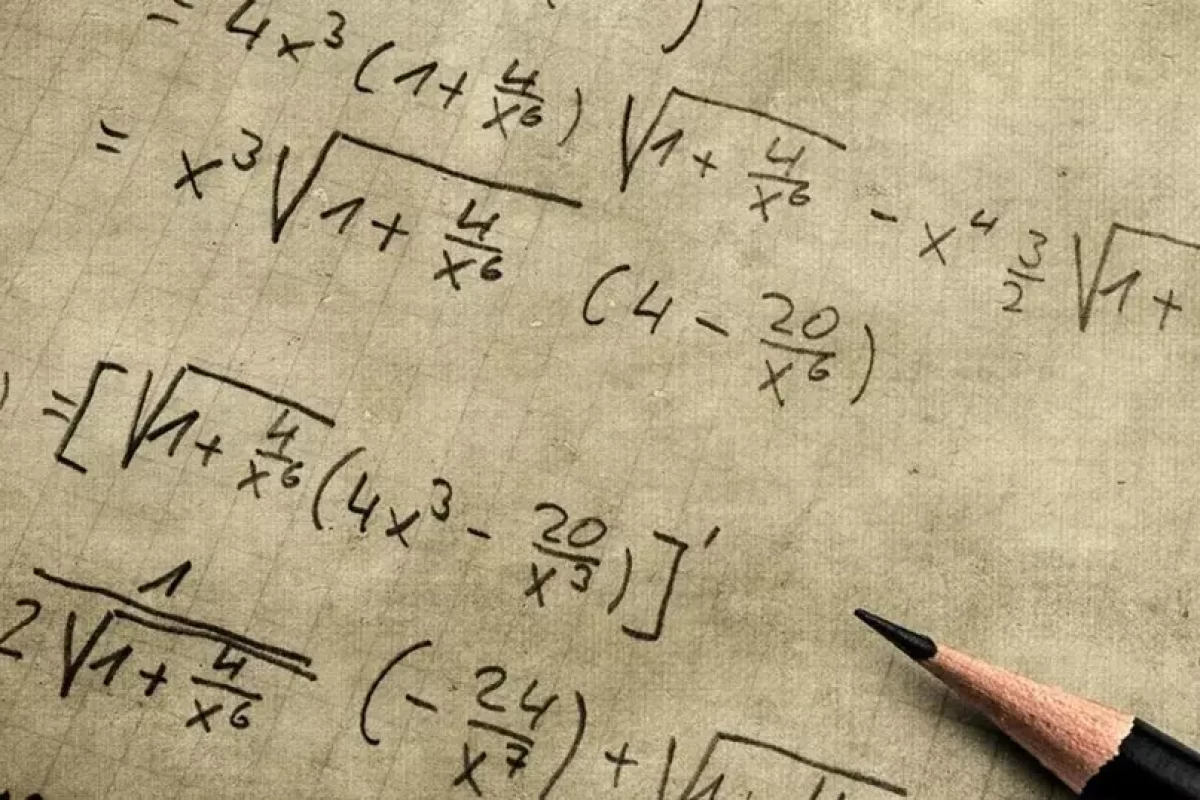 = 4x³(1 + 4/x⁶) √(1 + 4/x⁶) - x⁴ 3/2 √(1 +
= x³ √(1 + 4/x⁶) (4 - 20/x⁶)
) = [√(1 + 4/x⁶) (4x³ - 20/x³)]'
1/(2√(1 + 4/x⁶)) (-24/x⁷) + √(1 + 4